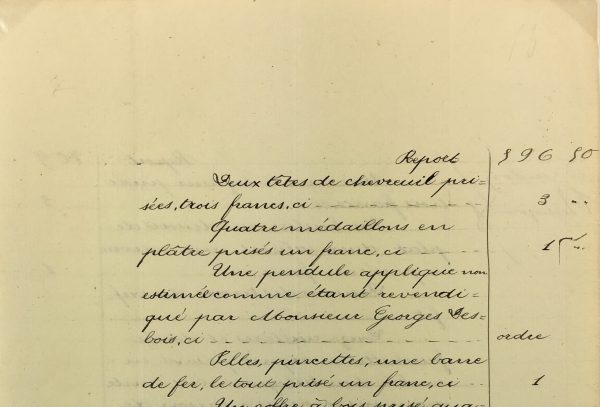 Report 596 50
Deux têtes de chevreuil pri-
sées, trois francs, ci 3 "
Quatre médaillons en
plâtre prisés un franc, ci 1
Une pendule applique non
estimée comme étant revendi-
qué par Monsieur Georges Des-
bois, ci ordre
Pelles, pincettes, une barre
de fer, le tout prisé un franc, ci 1
Un coffre à bois prisé qua-